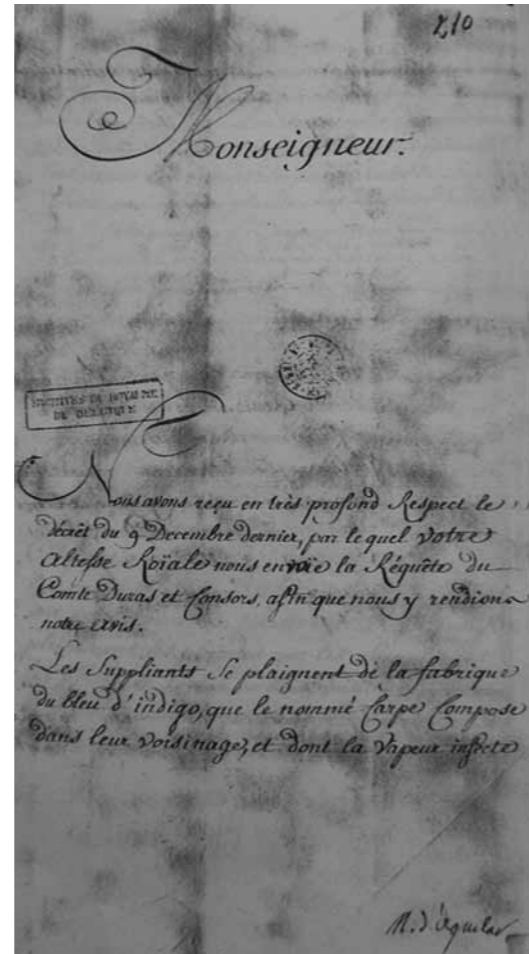 210
Monseigneur.
ARCHIVES DU ROYAUME
DE BELGIQUE
Nous avons reçu en très profond Respect le
décrêt du 9 Decembre dernier, par le quel Votre
Altesse Roïale nous envoïe la Réquête du
Comte Duras et Consors, afin que nous y rendions
notre avis.
Les Suppliants se plaignent de la fabrique
du bleu d'indigo, que le nommé Carpe Compose
dans leur voisinage, et dont la vapeur infecte
M. d'Aguilar